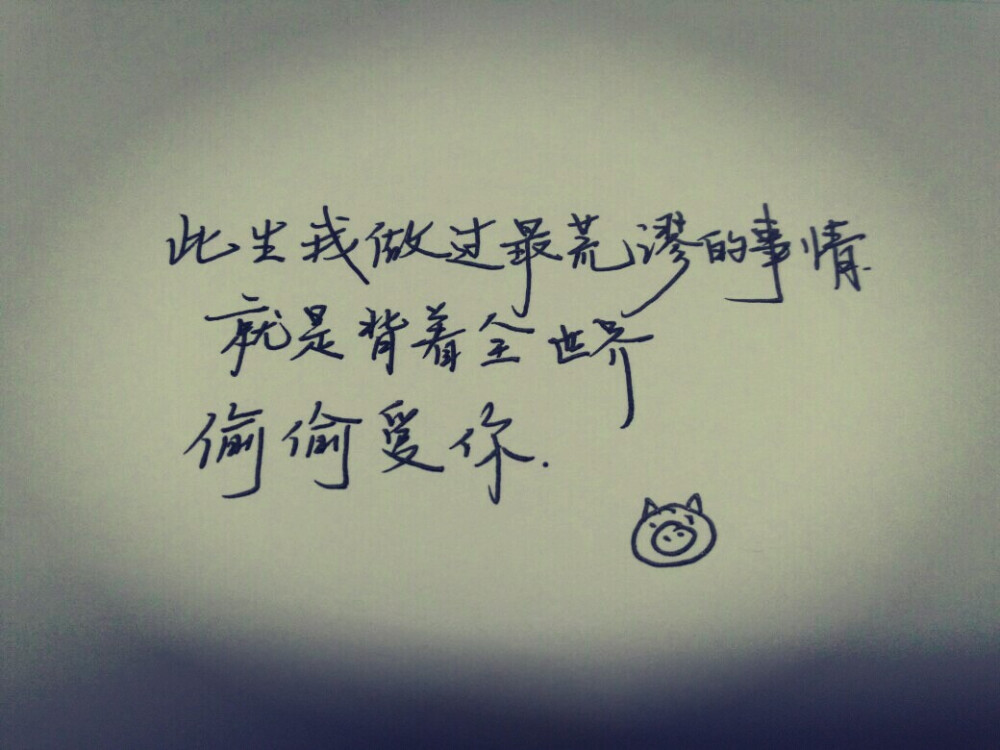 此生我做过最荒谬的事情.
就是背着全世界
偷偷爱你.